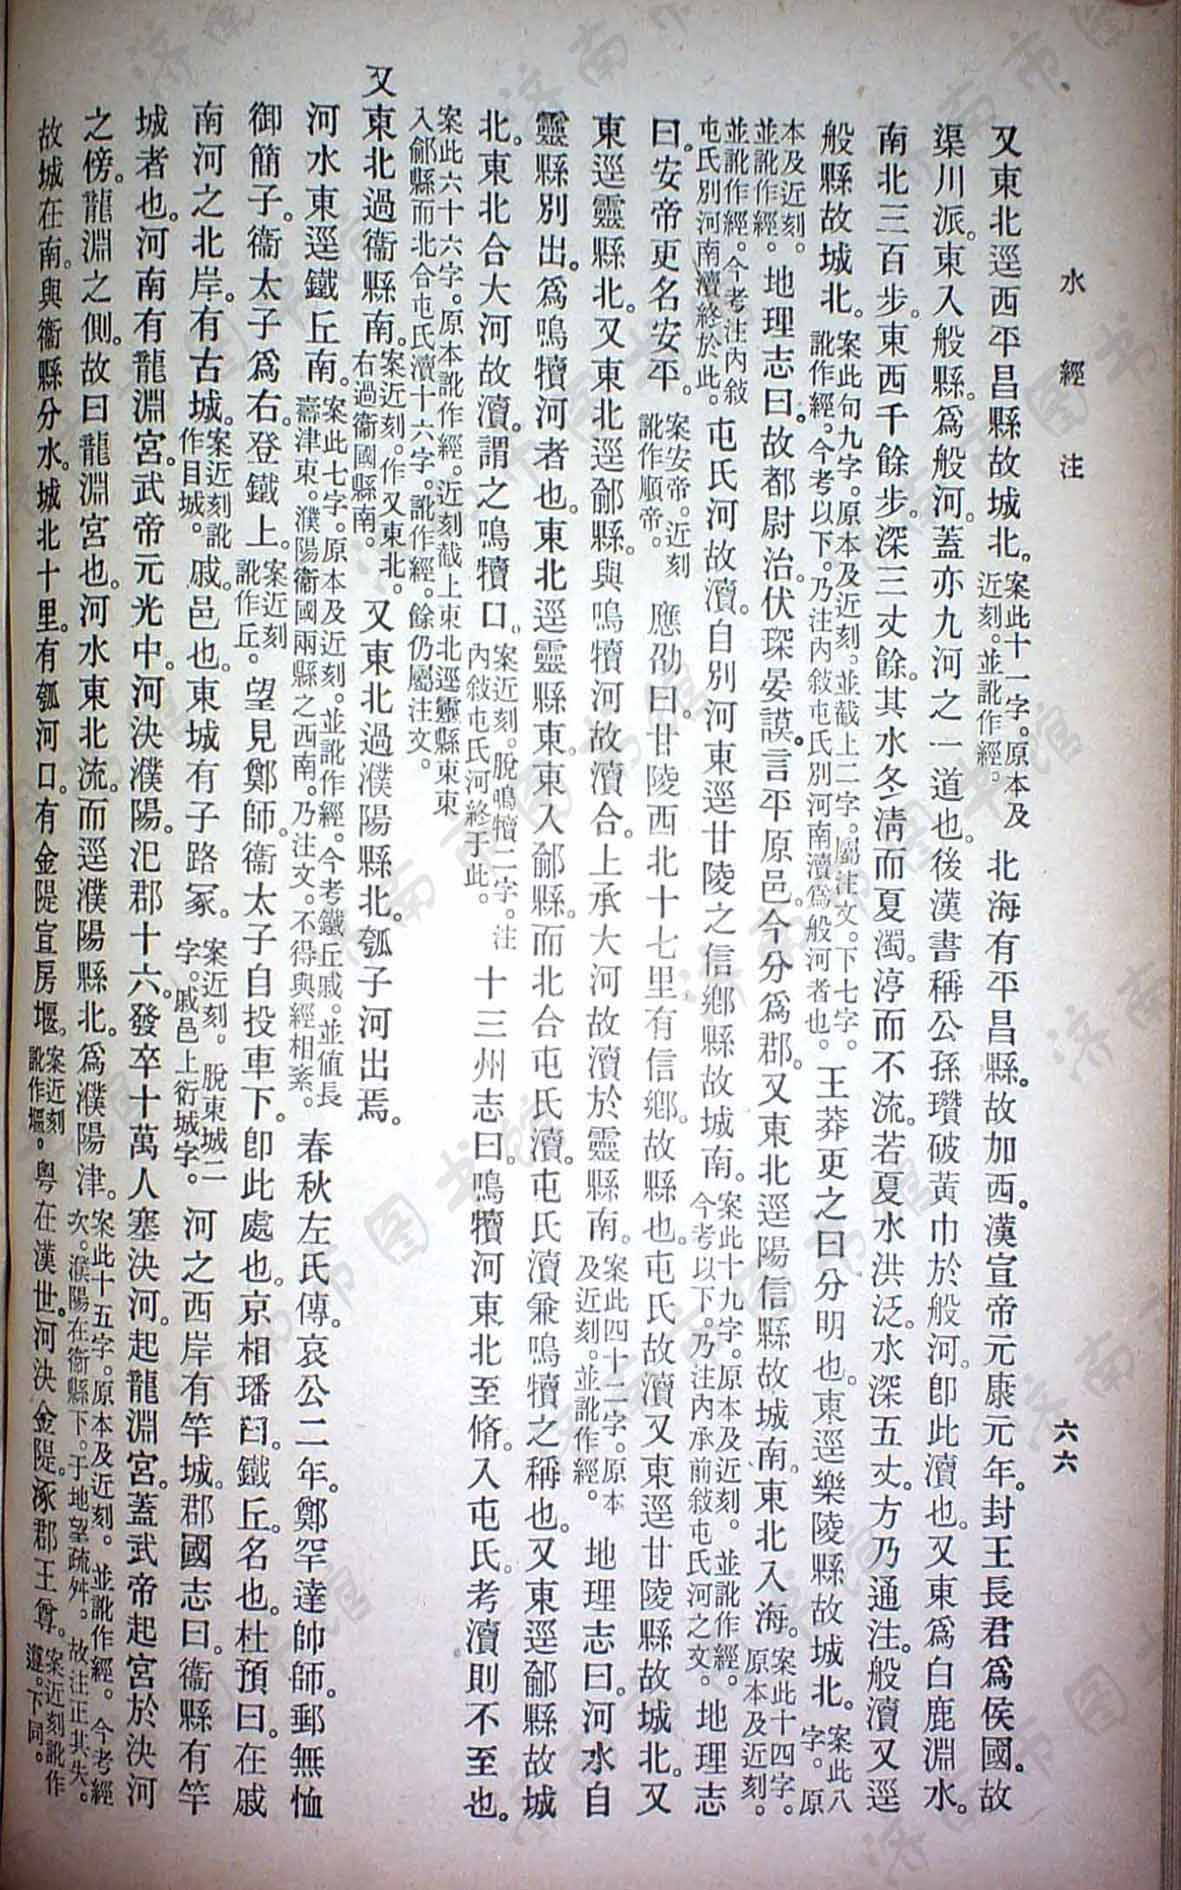 水經注
六六
又東北逕西平昌縣故城北。案此十一字。原本及近刻。並訛作經。北海有平昌縣。故加西。漢宣帝元康元年。封王長君爲侯國。故
渠川派。東入般縣。爲般河。蓋亦九河之一道也。後漢書稱公孫瓚破黃巾於般河。卽此瀆也。又東爲白鹿淵水。
南北三百步。東西千餘步。深三丈餘。其水冬淸而夏濁。渟而不流。若夏水洪泛。水深五丈。方乃通注。般瀆又逕
般縣故城北。案此句九字。原本及近刻。並截上二字。屬注文。下七字。訛作經。今考以下。乃注內敍屯氏別河南瀆爲般河者也。王莽更之曰分明也。東逕樂陵縣故城北。案此八字。原
本及近刻。並訛作經。地理志曰。故都尉治。伏琛晏謨言平原邑。今分爲郡。又東北逕陽信縣故城南。東北入海。案此十四字。原本及近刻。
並訛作經。今考注內敍屯氏別河南瀆終於此。屯氏河故瀆。自別河東逕甘陵之信鄉縣故城南。案此十九字。原本及近刻。並訛作經。今考以下。乃注內承前敍屯氏河之文。地理志
曰。安帝更名安平。案安帝。近刻訛作順帝。應劭曰。甘陵西北十七里有信鄉。故縣也。屯氏故瀆又東逕甘陵縣故城北。又
東逕靈縣北。又東北逕鄃縣。與鳴犢河故瀆合。上承大河故瀆於靈縣南。案此四十二字。原本及近刻。並訛作經。地理志曰。河水自
靈縣別出。爲鳴犢河者也。東北逕靈縣東。東入鄃縣。而北合屯氏瀆。屯氏瀆兼鳴犢之稱也。又東逕鄃縣故城
北。東北合大河故瀆。謂之鳴犢口。案近刻。脫鳴犢二字。注內敍屯氏河終于此。十三州志曰。鳴犢河東北至脩。入屯氏。考瀆則不至也。
案此六十六字。原本訛作經。近刻截上東北逕靈縣東東入鄃縣而北合屯氏瀆十六字。訛作經。餘仍屬注文。
又東北過衞縣南。案近刻。作又東北。右過衞國縣南。又東北過濮陽縣北。瓠子河出焉。
河水東逕鐵丘南。案此七字。原本及近刻。並訛作經。今考鐵丘戚。並値長壽津東。濮陽衞國兩縣之西南。乃注文。不得與經相紊。春秋左氏傳。哀公二年。鄭罕達帥師。郵無恤
御簡子。衞太子爲右。登鐵上。案近刻訛作丘。望見鄭師。衞太子自投車下。卽此處也。京相璠曰。鐵丘。名也。杜預曰。在戚
南河之北岸。有古城。案近刻訛作目城。戚邑也。東城有子路冢。案近刻。脫東城二字。戚邑上衍城字。河之西岸有竿城。郡國志曰。衞縣有竿
城者也。河南有龍淵宮。武帝元光中。河決濮陽。汜郡十六。發卒十萬人塞決河。起龍淵宮。蓋武帝起宮於決河
之傍。龍淵之側。故曰龍淵宮也。河水東北流。而逕濮陽縣北。爲濮陽津。案此十五字。原本及近刻。並訛作經。今考經次。濮陽在衞縣下。于地望疏舛。故注正其失。
故城在南。與衞縣分水。城北十里。有瓠河口。有金隄宣房堰。案近刻訛作堨。粵在漢世。河決金隄。涿郡王尊。案近刻訛作遵。下同。